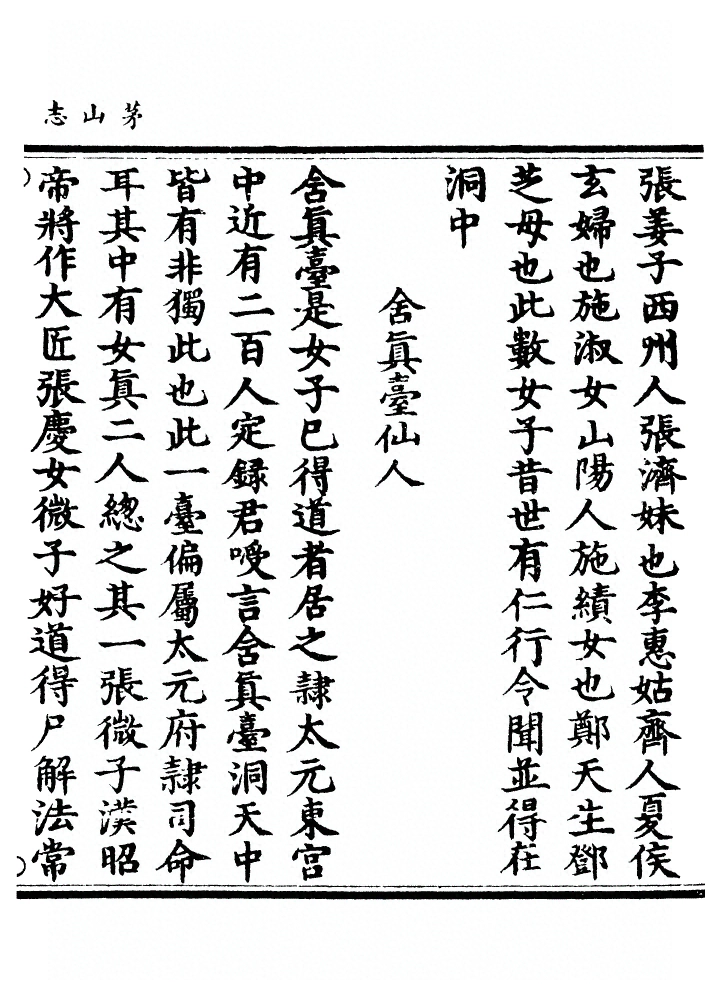 茅山志
張姜子西州人張濟妹也李惠姑齊人夏侯
玄婦也施淑女山陽人施績女也鄭天生鄧
芝母也此數女子昔世有仁行令聞並得在
洞中
含眞臺仙人
含眞臺是女子已得道者居之隷太元東宮
中近有二百人定録君噯言含眞臺洞天中
皆有非獨此也此一臺偏屬太元府隷司命
耳其中有女眞二人總之其一張微子漢昭
帝將作大匠張慶女微子好道得尸解法常